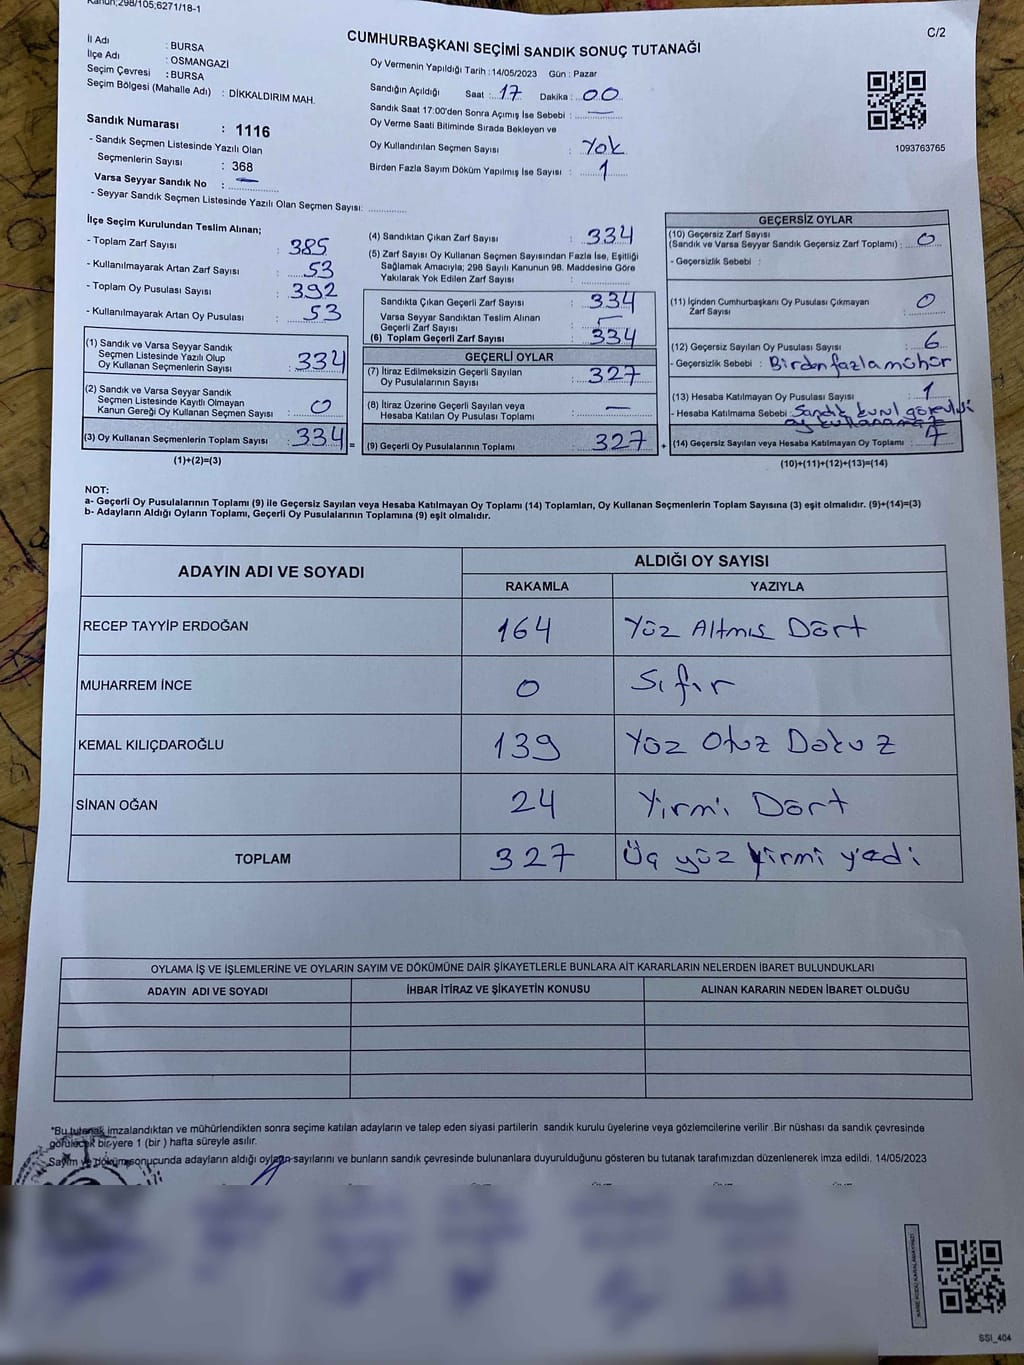 Kanun;298/105;6271/18-1
C/2
CUMHURBAŞKANI SEÇİMİ SANDIK SONUÇ TUTANAĞI
İl Adı : BURSA
İlçe Adı : OSMANGAZİ
Seçim Çevresi : BURSA
Seçim Bölgesi (Mahalle Adı) : DİKKALDIRIM MAH.
Sandık Numarası : 1116
- Sandık Seçmen Listesinde Yazılı Olan
Seçmenlerin Sayısı : 368
Varsa Seyyar Sandık No : —
- Seyyar Sandık Seçmen Listesinde Yazılı Olan Seçmen Sayısı: ..............
Oy Vermenin Yapıldığı Tarih : 14/05/2023 Gün : Pazar
Sandığın Açıldığı Saat : 17 Dakika : 00
Sandık Saat 17:00'den Sonra Açılmış İse Sebebi : —
Oy Verme Saati Bitiminde Sırada Bekleyen ve
Oy Kullandırılan Seçmen Sayısı : Yok
Birden Fazla Sayım Döküm Yapılmış İse Sayısı : 1
1093763765
İlçe Seçim Kurulundan Teslim Alınan;
- Toplam Zarf Sayısı : 385
- Kullanılmayarak Artan Zarf Sayısı : 53
- Toplam Oy Pusulası Sayısı : 392
- Kullanılmayarak Artan Oy Pusulası : 53
(1) Sandık ve Varsa Seyyar Sandık
Seçmen Listesinde Yazılı Olup
Oy Kullanan Seçmenlerin Sayısı : 334
(2) Sandık ve Varsa Seyyar Sandık
Seçmen Listesinde Kayıtlı Olmayan
Kanun Gereği Oy Kullanan Seçmen Sayısı : 0
(3) Oy Kullanan Seçmenlerin Toplam Sayısı : 334 =
(1)+(2)=(3)
(4) Sandıktan Çıkan Zarf Sayısı : 334
(5) Zarf Sayısı Oy Kullanan Seçmen Sayısından Fazla İse, Eşitliği
Sağlamak Amacıyla; 298 Sayılı Kanunun 98. Maddesine Göre
Yakılarak Yok Edilen Zarf Sayısı : ..............
Sandıkta Çıkan Geçerli Zarf Sayısı : 334
Varsa Seyyar Sandıktan Teslim Alınan
Geçerli Zarf Sayısı : —
(6) Toplam Geçerli Zarf Sayısı : 334
GEÇERLİ OYLAR
(7) İtiraz Edilmeksizin Geçerli Sayılan
Oy Pusulalarının Sayısı : 327
(8) İtiraz Üzerine Geçerli Sayılan veya
Hesaba Katılan Oy Pusulaları Toplamı : —
(9) Geçerli Oy Pusulalarının Toplamı : 327 +
GEÇERSİZ OYLAR
(10) Geçersiz Zarf Sayısı
(Sandık ve Varsa Seyyar Sandık Geçersiz Zarf Toplamı) : 0
- Geçersizlik Sebebi :
(11) İçinden Cumhurbaşkanı Oy Pusulası Çıkmayan
Zarf Sayısı : 0
(12) Geçersiz Sayılan Oy Pusulası Sayısı : 6
- Geçersizlik Sebebi : Birden fazla mühür
(13) Hesaba Katılmayan Oy Pusulası Sayısı : 1
- Hesaba Katılmama Sebebi : Sandık kurul görevlisi
oy
(14) Geçersiz Sayılan veya Hesaba Katılmayan Oy Toplamı : 7
(10)+(11)+(12)+(13)=(14)
NOT:
a- Geçerli Oy Pusulalarının Toplamı (9) ile Geçersiz Sayılan veya Hesaba Katılmayan Oy Toplamı (14) Toplamları, Oy Kullanan Seçmenlerin Toplam Sayısına (3) eşit olmalıdır. (9)+(14)=(3)
b- Adayların Aldığı Oyların Toplamı, Geçerli Oy Pusulalarının Toplamına (9) eşit olmalıdır.
ADAYIN ADI VE SOYADI
ALDIĞI OY SAYISI
RAKAMLA YAZIYLA
RECEP TAYYİP ERDOĞAN 164 Yüz Altmış Dört
MUHARREM İNCE 0 Sıfır
KEMAL KILIÇDAROĞLU 139 Yüz Otuz Dokuz
SİNAN OĞAN 24 Yirmi Dört
TOPLAM 327 Üç yüz yirmi yedi
OYLAMA İŞ VE İŞLEMLERİNE VE OYLARIN SAYIM VE DÖKÜMÜNE DAİR ŞİKAYETLERLE BUNLARA AİT KARARLARIN NELERDEN İBARET BULUNDUKLARI
ADAYIN ADI VE SOYADI İHBAR İTİRAZ VE ŞİKAYETİN KONUSU ALINAN KARARIN NEDEN İBARET OLDUĞU
*Bu tutanak imzalandıktan ve mühürlendikten sonra seçime katılan adayların ve talep eden siyasi partilerin sandık kurulu üyelerine veya gözlemcilerine verilir .Bir nüshası da sandık çevresinde
görülecek bir yere 1 (bir ) hafta süreyle asılır.
Sayım ve döküm sonucunda adayların aldığı oyların sayılarını ve bunların sandık çevresinde bulunanlara duyurulduğunu gösteren bu tutanak tarafımızdan düzenlenerek imza edildi. 14/05/2023
SSI_404